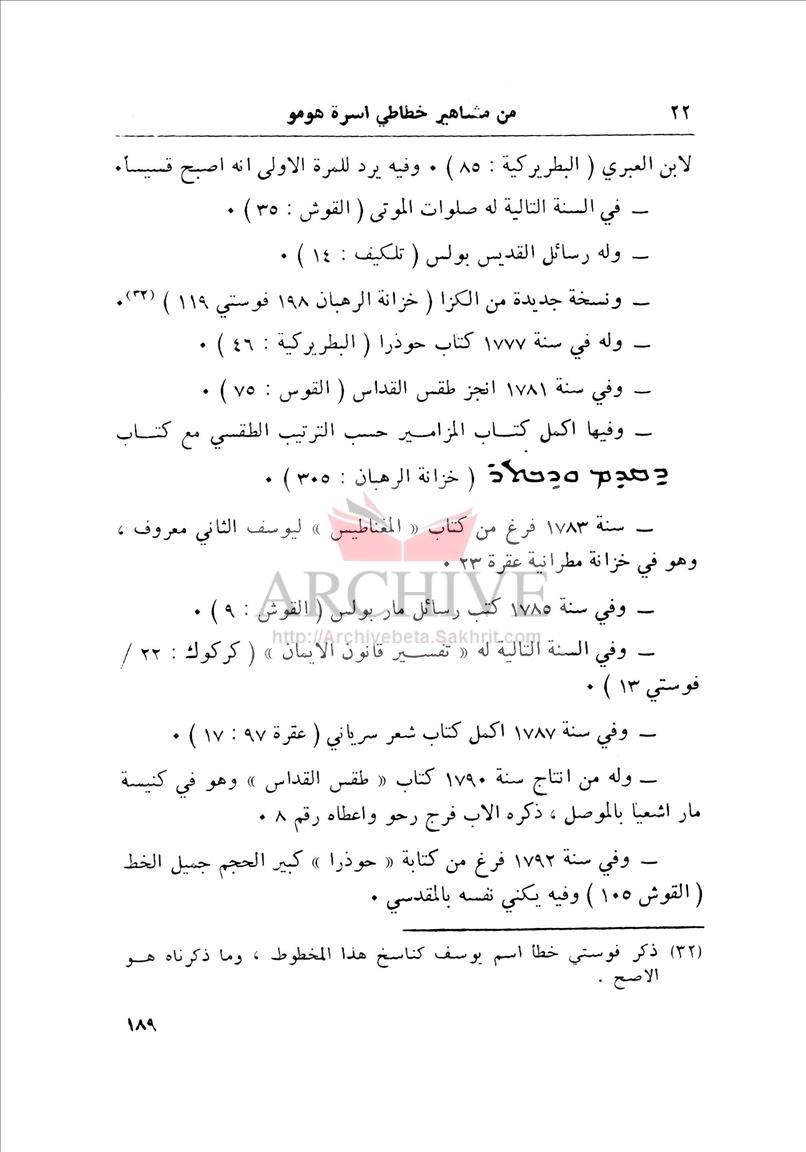 ٢٢ من مشاهير خطاطي اسرة هومو
لابن العبري ( البطريركية : ٨٥ ) ٠ وفيه يرد للمرة الاولى انه اصبح قسيسا٠
ــ في السنة التالية له صلوات الموتى ( القوش : ٣٥ ) ٠
ــ وله رسائل القديس بولس ( تلكيف : ١٤ ) ٠
ــ ونسخة جديدة من الكزا ( خزانة الرهبان ١٩٨ فوستي ١١٩ ) (٣٢)٠
ــ وله في سنة ١٧٧٧ كتاب حوذرا ( البطريركية : ٤٦ ) ٠
ــ وفي سنة ١٧٨١ انجز طقس القداس ( القوس : ٧٥ ) ٠
ــ وفيها اكمل كتــاب المزامــير حسب الترتيب الطقسي مع كتــاب
( خزانة الرهبان : ٣٠٥ ) ٠
ــ سنة ١٧٨٣ فرغ من كتاب « المغناطيس » ليوسف الثاني معروف ،
وهو في خزانة مطرانية عقرة ٢٣ ٠
ARCHIVE
ــ وفي سنة ١٧٨٥ كتب رسائل مار بولس ( القوش : ٩ ) ٠
http://Archivebeta.Sakhrit.com
ــ وفي السنة التالية له « تفســير قانون الايمان » ( كركوك : ٢٢ /
فوستي ١٣ ) ٠
ــ وفي سنة ١٧٨٧ اكمل كتاب شعر سرياني ( عقرة ٩٧ : ١٧ ) ٠
ــ وله من انتاج سنة ١٧٩٠ كتاب « طقس القداس » وهو في كنيسة
مار اشعيا بالموصل ، ذكره الاب فرج رحو واعطاه رقم ٨ ٠
ــ وفي سنة ١٧٩٢ فرغ من كتابة « حوذرا » كبير الحجم جميل الخط
( القوش ١٠٥ ) وفيه يكني نفسه بالمقدسي ٠
(٣٢) ذكر فوستي خطأ اسم يوسف كناسخ هذا المخطوط ، وما ذكرناه هــو
الاصح .
١٨٩